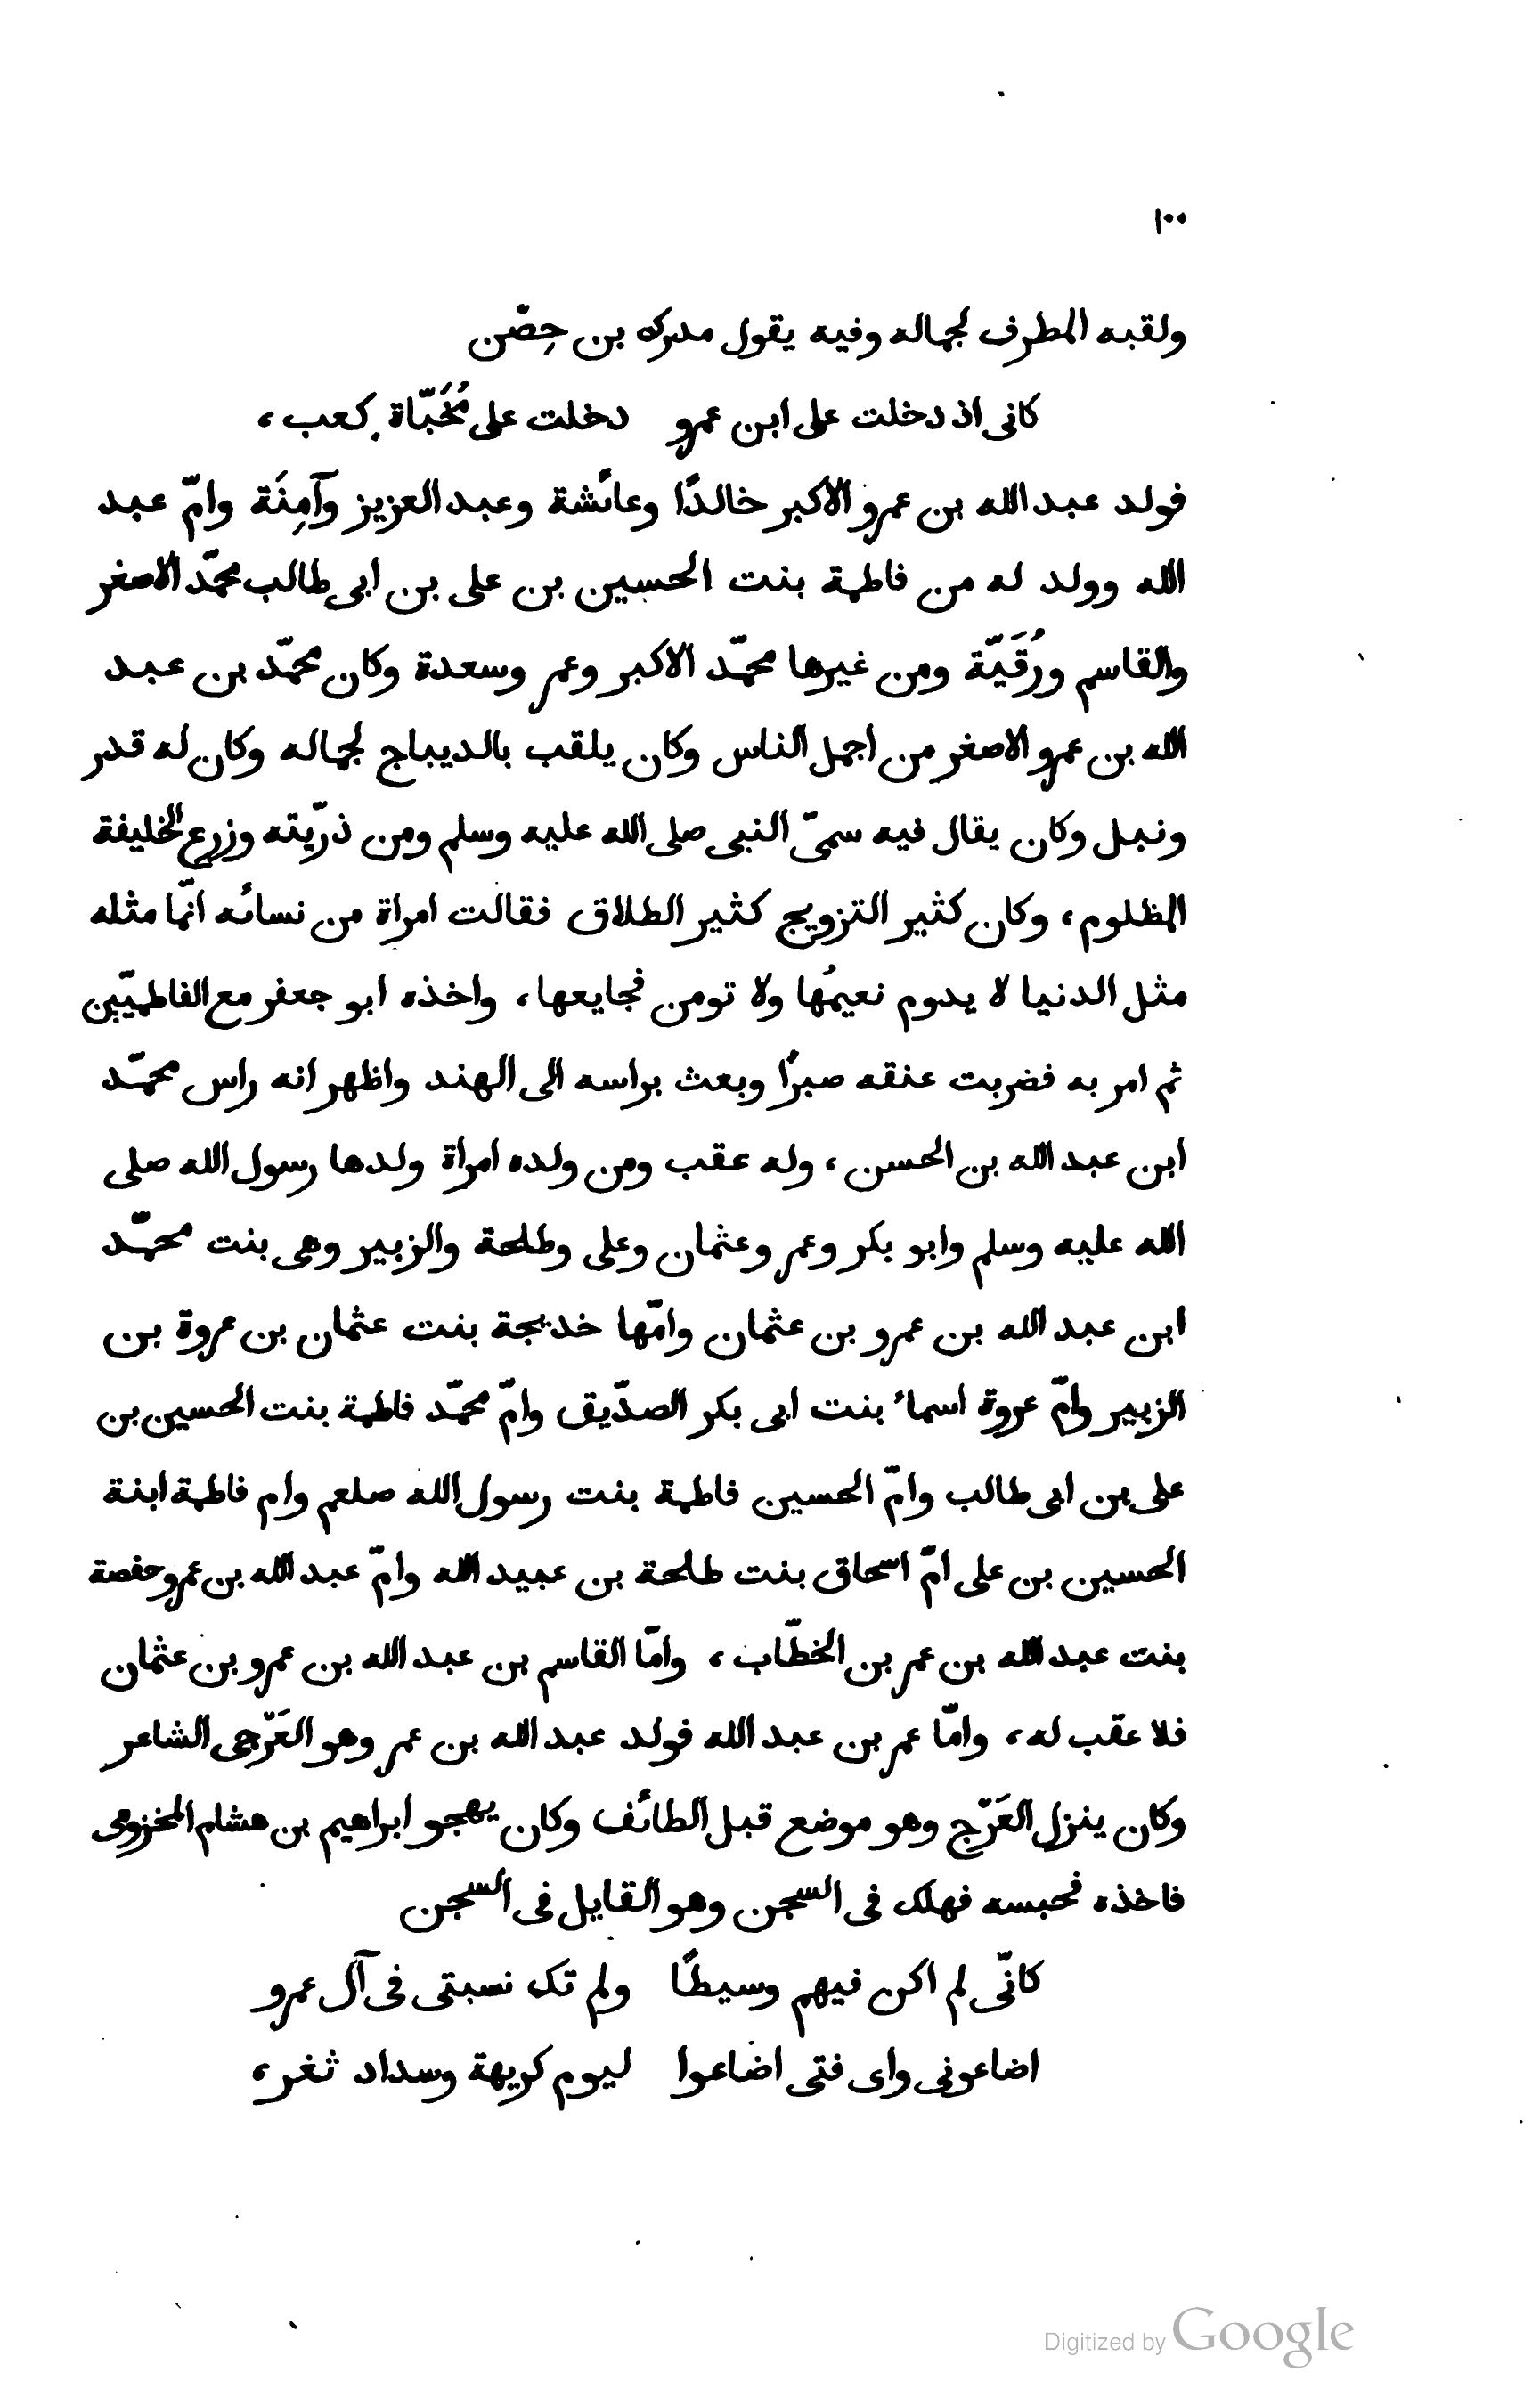 ١٠٠
ولقبه المطرف لجماله وفيه يقول مدرك بن حِصْن
كانى اذ دخلت على ابن عمرو دخلت على مُخَبّاة كعب،
فولد عبد الله بن عمرو الاكبر خالدًا وعائشة وعبد العزيز وآمِنَة وامّ عبد
الله وولد له من فاطمة بنت الحسين بن على بن ابى طالب محمّد الاصغر
والقاسم ورُقَيّة ومن غيرها محمّد الاكبر وعمر وسعدة وكان محمّد بن عبد
الله بن عمرو الاصغر من اجمل الناس وكان يلقب بالديباج لجماله وكان له قدر
ونبل وكان يقال فيه سمىّ النبى صلى الله عليه وسلم ومن ذرّيته وزرع الخليفة
المظلوم، وكان كثير التزويج كثير الطلاق فقالت امراة من نسائه انّما مثله
مثل الدنيا لا يدوم نعيمُها ولا تومن فجايعها، واخذه ابو جعفر مع الفاطميّين
ثم امر به فضربت عنقه صبرًا وبعث براسه الى الهند واظهر انه راس محمّد
ابن عبد الله بن الحسن، وله عقب ومن ولده امراة ولدها رسول الله صلى
الله عليه وسلم وابو بكر وعمر وعثمان وعلى وطلحة والزبير وهى بنت محمّد
ابن عبد الله بن عمرو بن عثمان وامّها خديجة بنت عثمان بن عروة بن
الزبير وامّ عروة اسماء بنت ابى بكر الصدّيق وامّ محمّد فاطمة بنت الحسين بن
على بن ابى طالب وامّ الحسين فاطمة بنت رسول الله صلعم وام فاطمة ابنة
الحسين بن على امّ اسحاق بنت طلحة بن عبيد الله وامّ عبد الله بن عمرو حفصة
بنت عبد الله بن عمر بن الخطّاب، وامّا القاسم بن عبد الله بن عمرو بن عثمان
فلا عقب له، وامّا عمر بن عبد الله فولد عبد الله بن عمر وهو العَرْجى الشاعر
وكان ينزل العَرْج وهو موضع قبل الطائف وكان يهجو ابراهيم بن هشام المخزومى
فاخذه فحبسه فهلك فى السجن وهو القايل فى السجن
كانّى لم اكن فيهم وسيطًا ولم تك نسبتى فى آل عمرو
اضاعونى واى فتى اضاعوا ليوم كريهة وسداد ثغر،
Digitized by Google